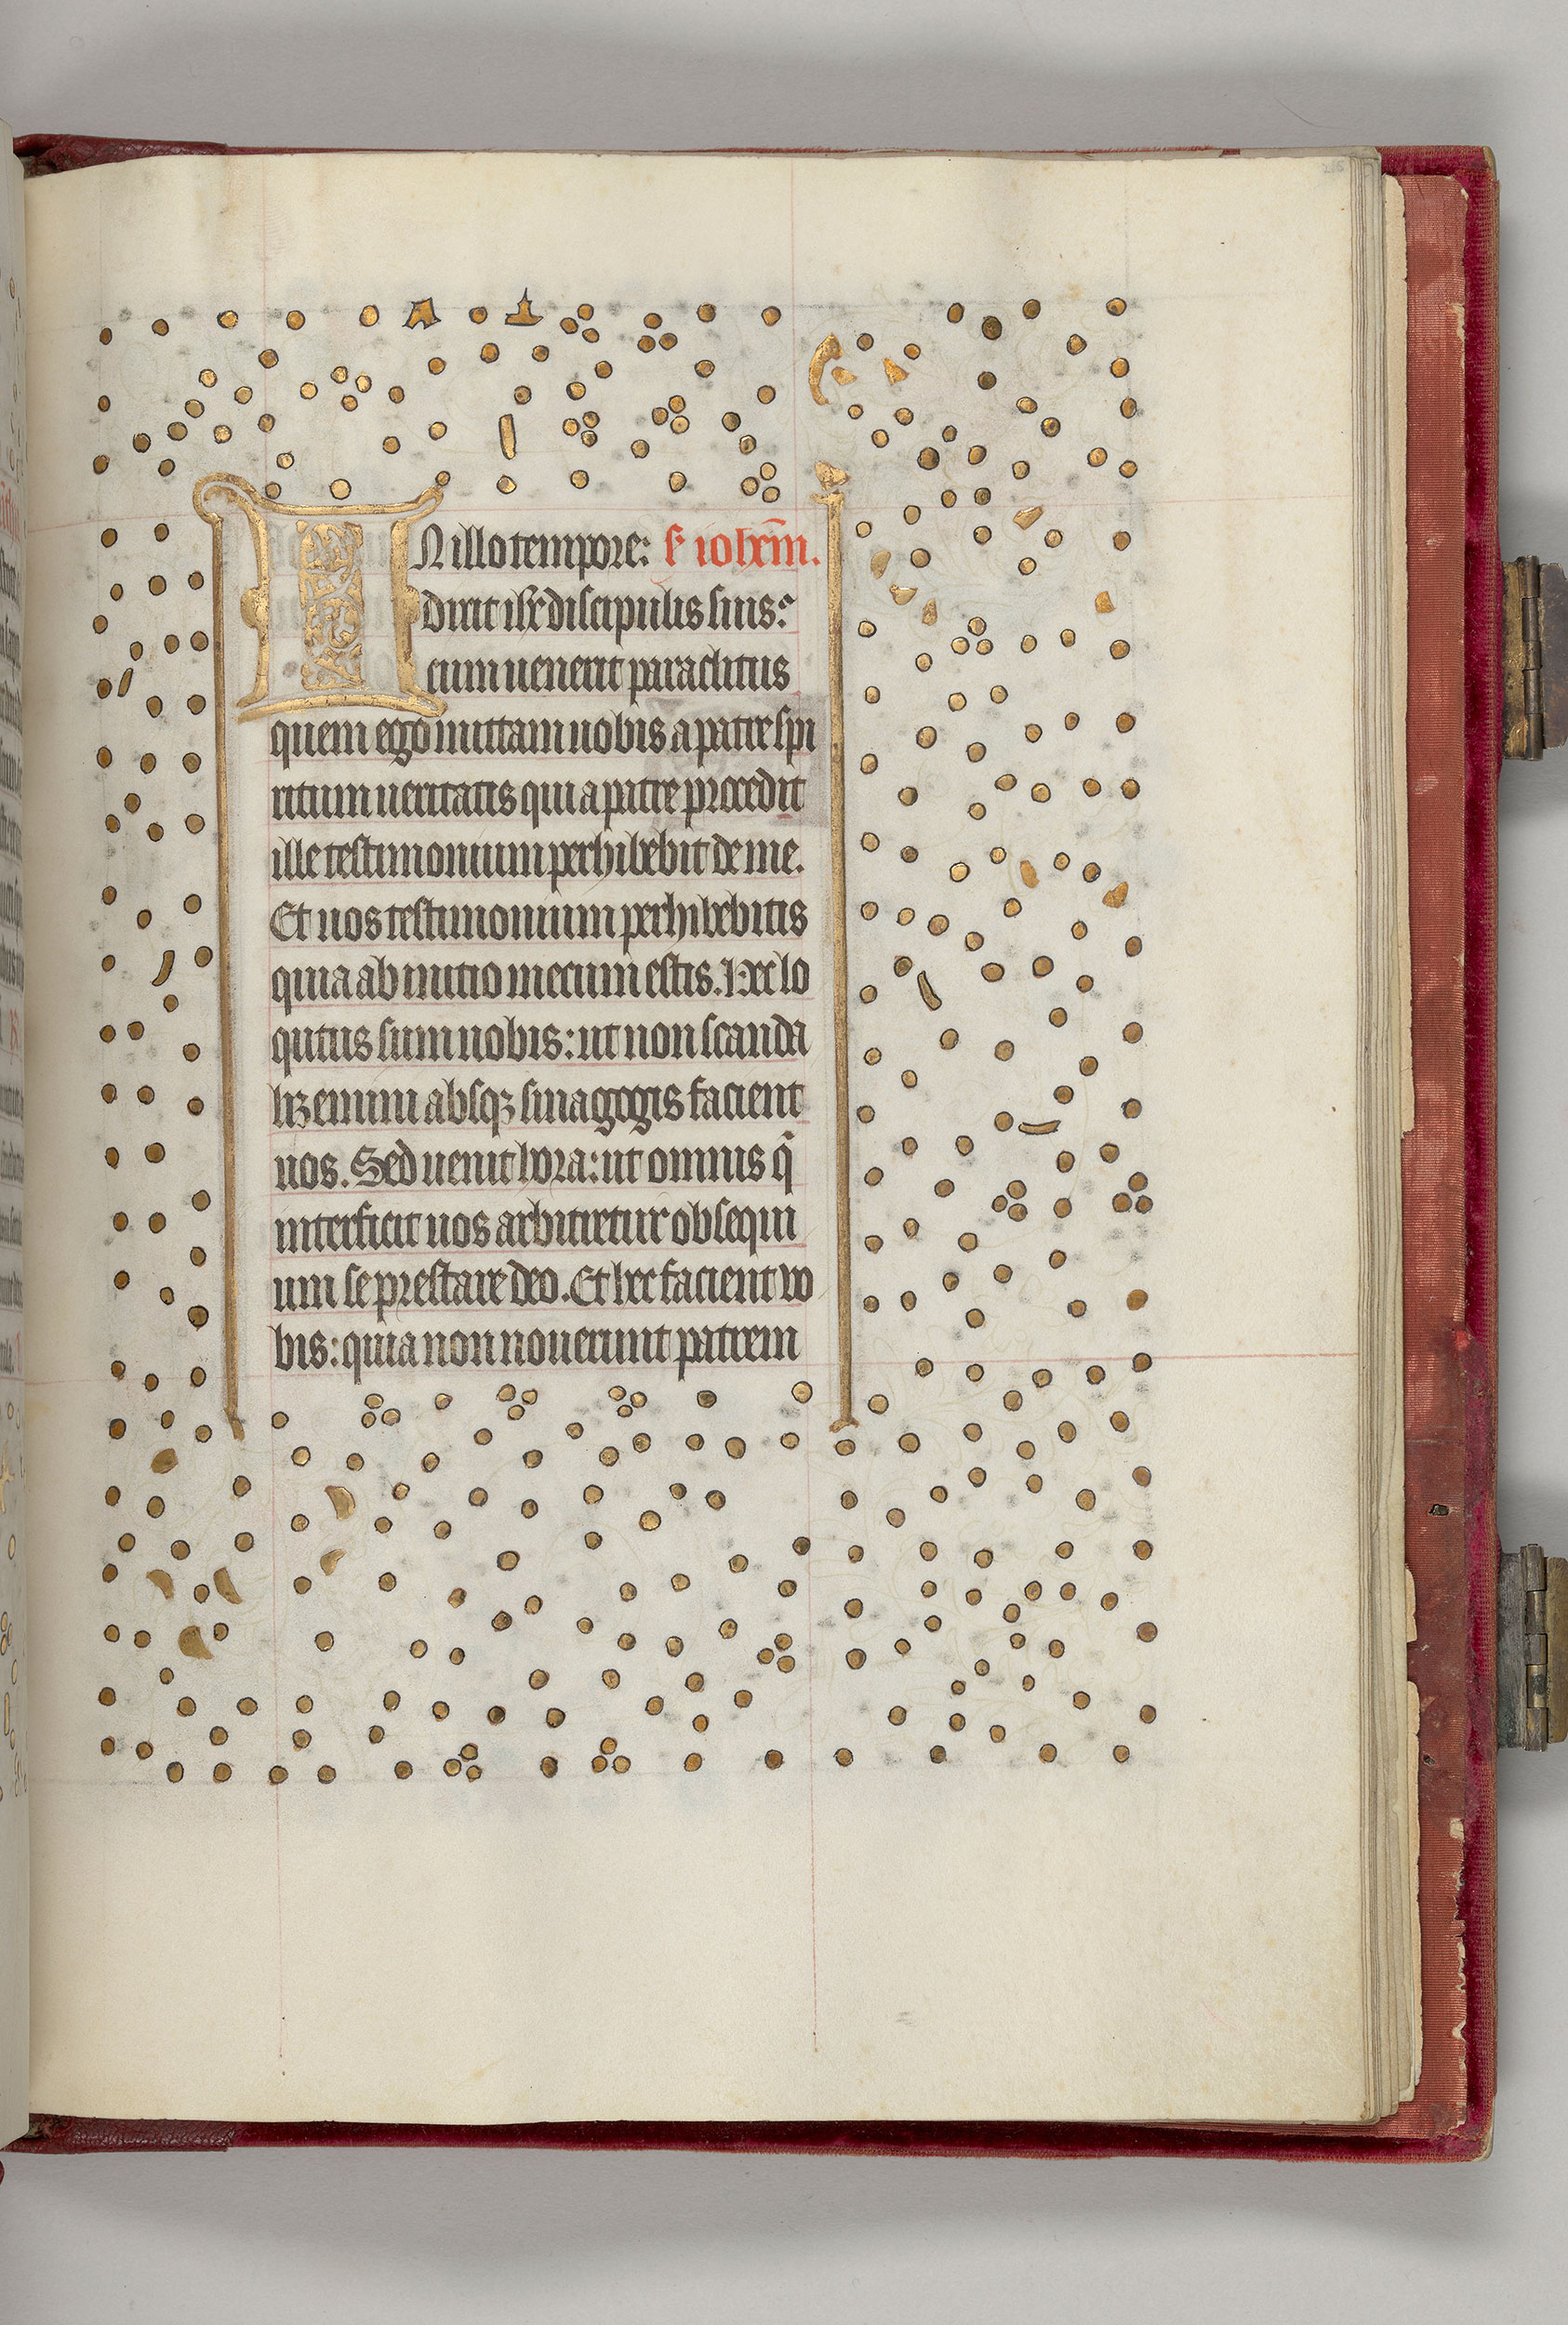 IN illo tempore: s̄ ioh̄em.
dixit ih̄c discipulis suis:
cum uenerit paraclitus
quem ego mittam uobis a patre spi
ritum ueritatis qui a patre procedit
ille testimonium perhibebit de me.
Et uos testimonium perhibebitis
quia ab initio mecum estis. Hec lo
qutus sum uobis: ut non scanda
lizemini absqꝫ sinagogis facient
uos. Sed uenit hora: ut omnis q̄
interficit uos arbitretur obsequi
um se prestare deo. Et hec facient uo
bis: quia non nouerunt patrem